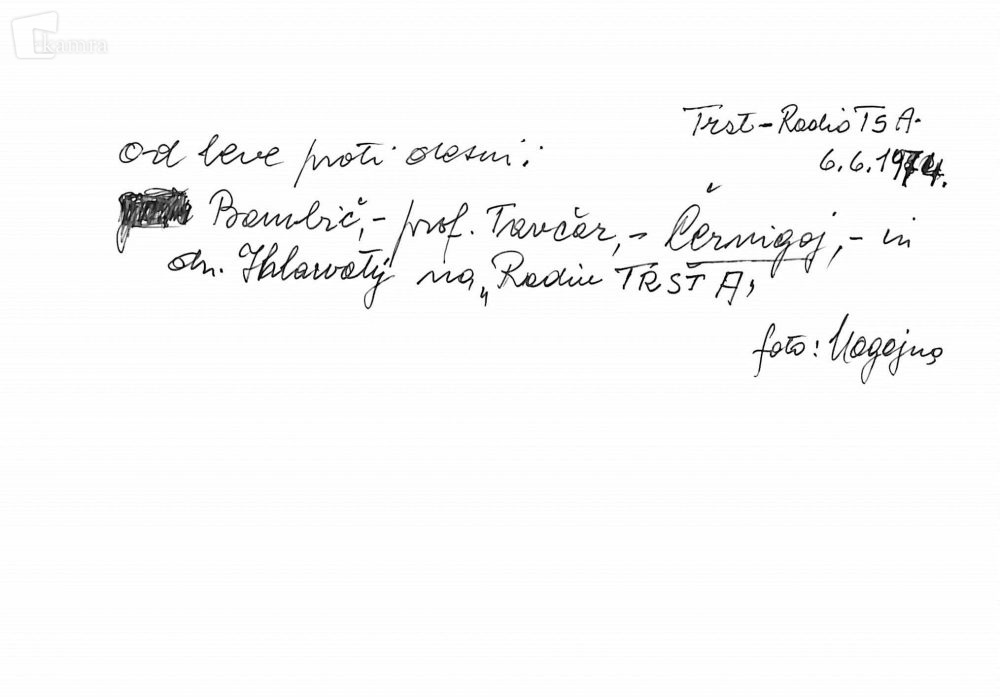 kamra
Trst - Radio TS A.
6.6.1974.
Od leve proti desni:
Bambič, - prof. Tavčar, - Černigoj, - in
dr. Hlavatý na „Radiu TRST A,
foto: Magajna